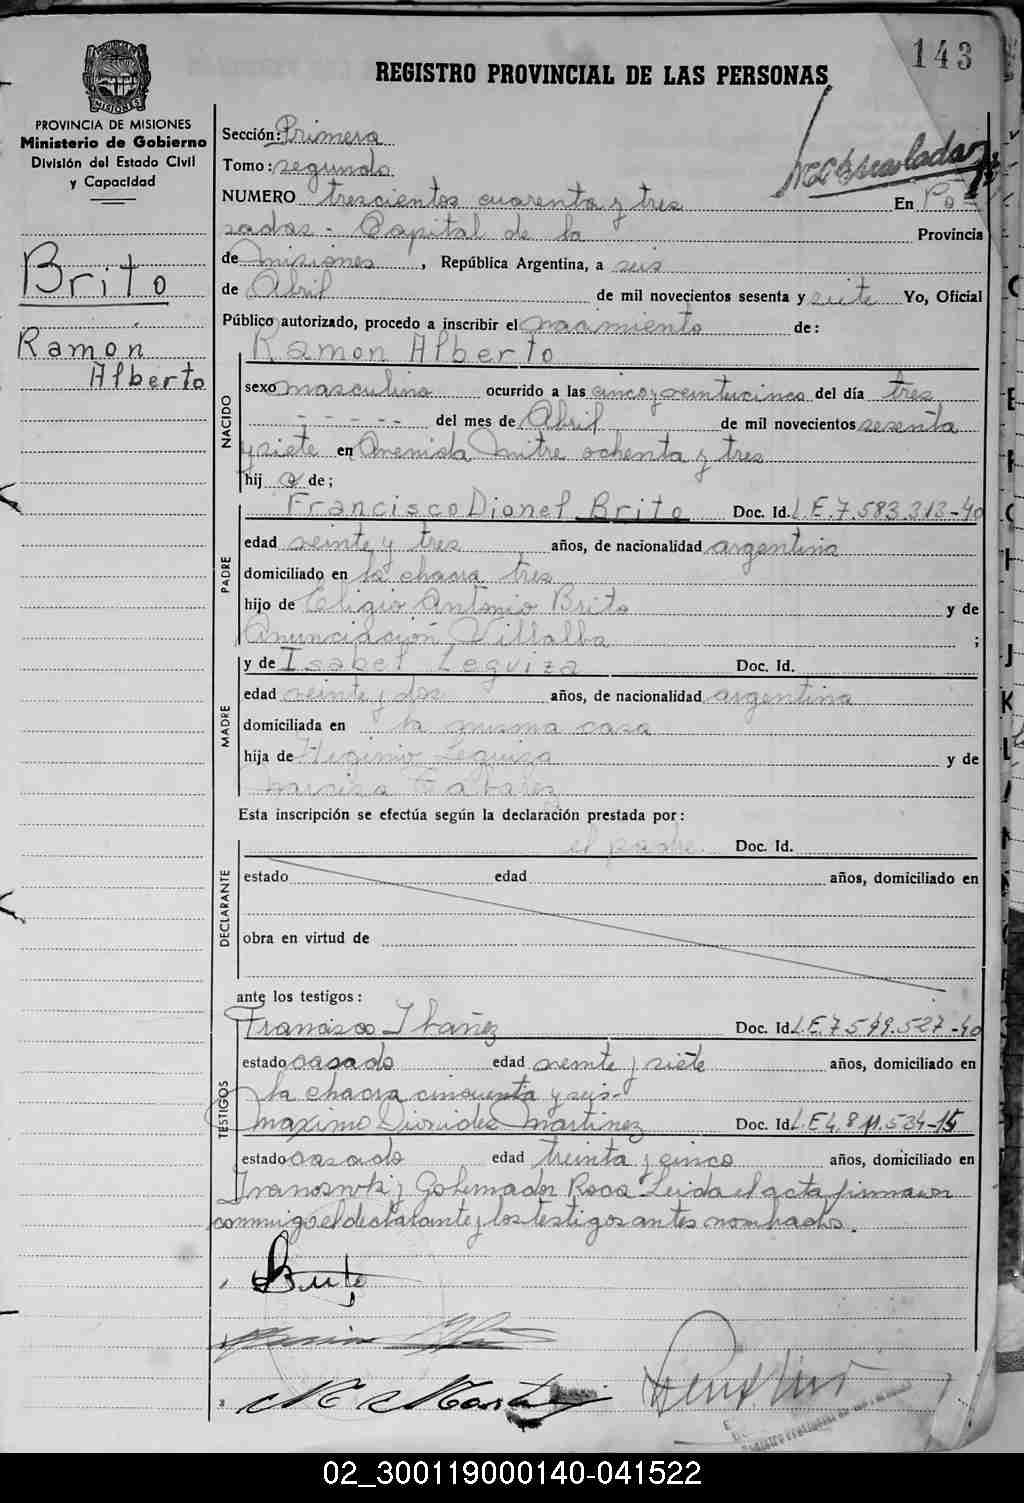 143
REGISTRO PROVINCIAL DE LAS PERSONAS
PROVINCIA DE MISIONES
Ministerio de Gobierno
División del Estado Civil
y Capacidad
Brito
Ramon
Alberto
Sección: Primera
Tomo: segundo
NUMERO trescientos cuarenta y tres En Po-
sadas - Capital de la Provincia
de Misiones, República Argentina, a seis
de Abril de mil novecientos sesenta y siete Yo, Oficial
Público autorizado, procedo a inscribir el nacimiento de:
Ramon Alberto
NACIDO
sexo masculino ocurrido a las cinco y veinticinco del día tres
- - - - - del mes de Abril de mil novecientos sesenta
y siete en Avenida Mitre ochenta y tres
hij o de;
PADRE
Francisco Dionel Brito Doc. Id. L.E.7.583.313-40
edad veinte y tres años, de nacionalidad argentina
domiciliado en la chacra tres
hijo de Eligio Antonio Brito y de
Anunciación Villalba ;
MADRE
y de Isabel Leguiza Doc. Id.
edad veinte y dos años, de nacionalidad argentina
domiciliada en la misma casa
hija de Higinio Leguiza y de
Narcisa
Esta inscripción se efectúa según la declaración prestada por:
DECLARANTE
el padre Doc. Id.
estado edad años, domiciliado en
obra en virtud de
ante los testigos:
TESTIGOS
Francisco Ibañez Doc. Id. L.E.7.549.527-40
estado casado edad veinte y siete años, domiciliado en
la chacra cincuenta y seis-
Maximo Martinez Doc. Id. L.E.4.811.534-15
estado casado edad treinta y cinco años, domiciliado en
y Gobernador Roca Leida el acta firmaron
conmigo el declarante y los testigos antes nombrados.
Brito
02_300119000140-041522